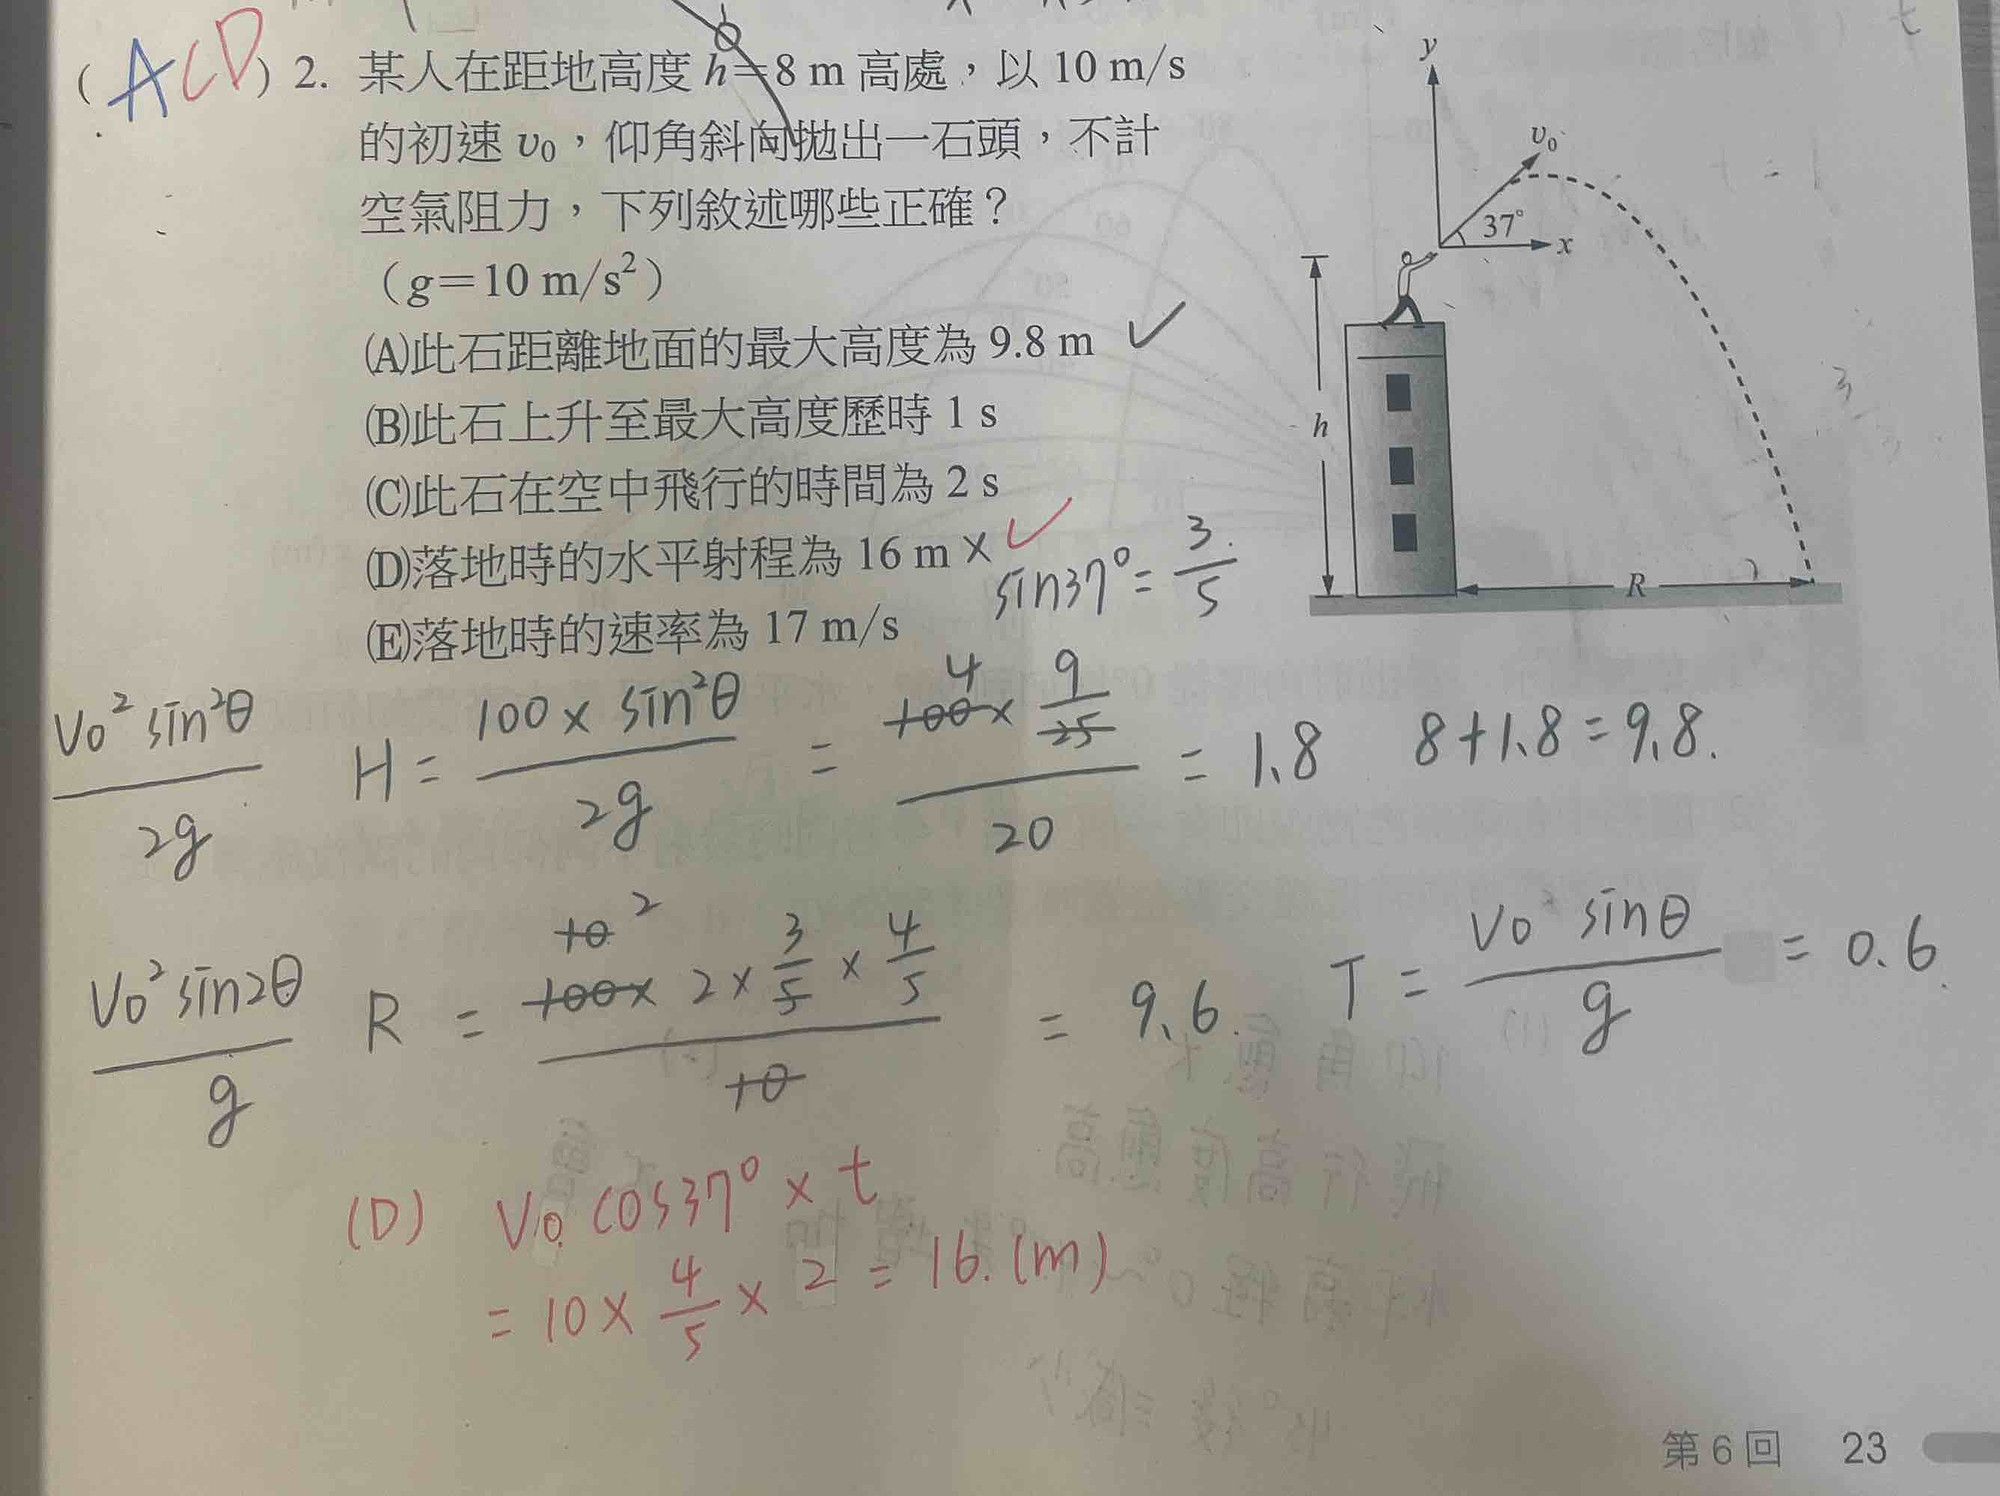 (ACD) 2. 某人在距地高度 h=8 m 高處，以 10 m/s
的初速 v₀，仰角斜向拋出一石頭，不計
空氣阻力，下列敘述哪些正確？
（g＝10 m/s²）
(A)此石距離地面的最大高度為 9.8 m ✓
(B)此石上升至最大高度歷時 1 s
(C)此石在空中飛行的時間為 2 s
(D)落地時的水平射程為 16 m × ✓
(E)落地時的速率為 17 m/s
y
v₀
37°
x
h
R
sin37° = 3/5
V₀² sin²θ / 2g
H = 100 × sin²θ / 2g = 100 × 9/25 / 20 = 1.8
4
8+1.8=9.8.
V₀² sin2θ / g
R = 100 × 2 × 3/5 × 4/5 / 10 = 9.6.
10 2
T = V₀² sinθ / g = 0.6.
(D) V₀ cos37° × t
= 10 × 4/5 × 2 = 16. (m)
第 6 回 23